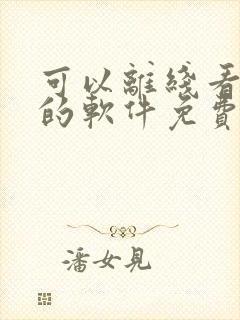 可以離綫看
的軟件免費
潘女見